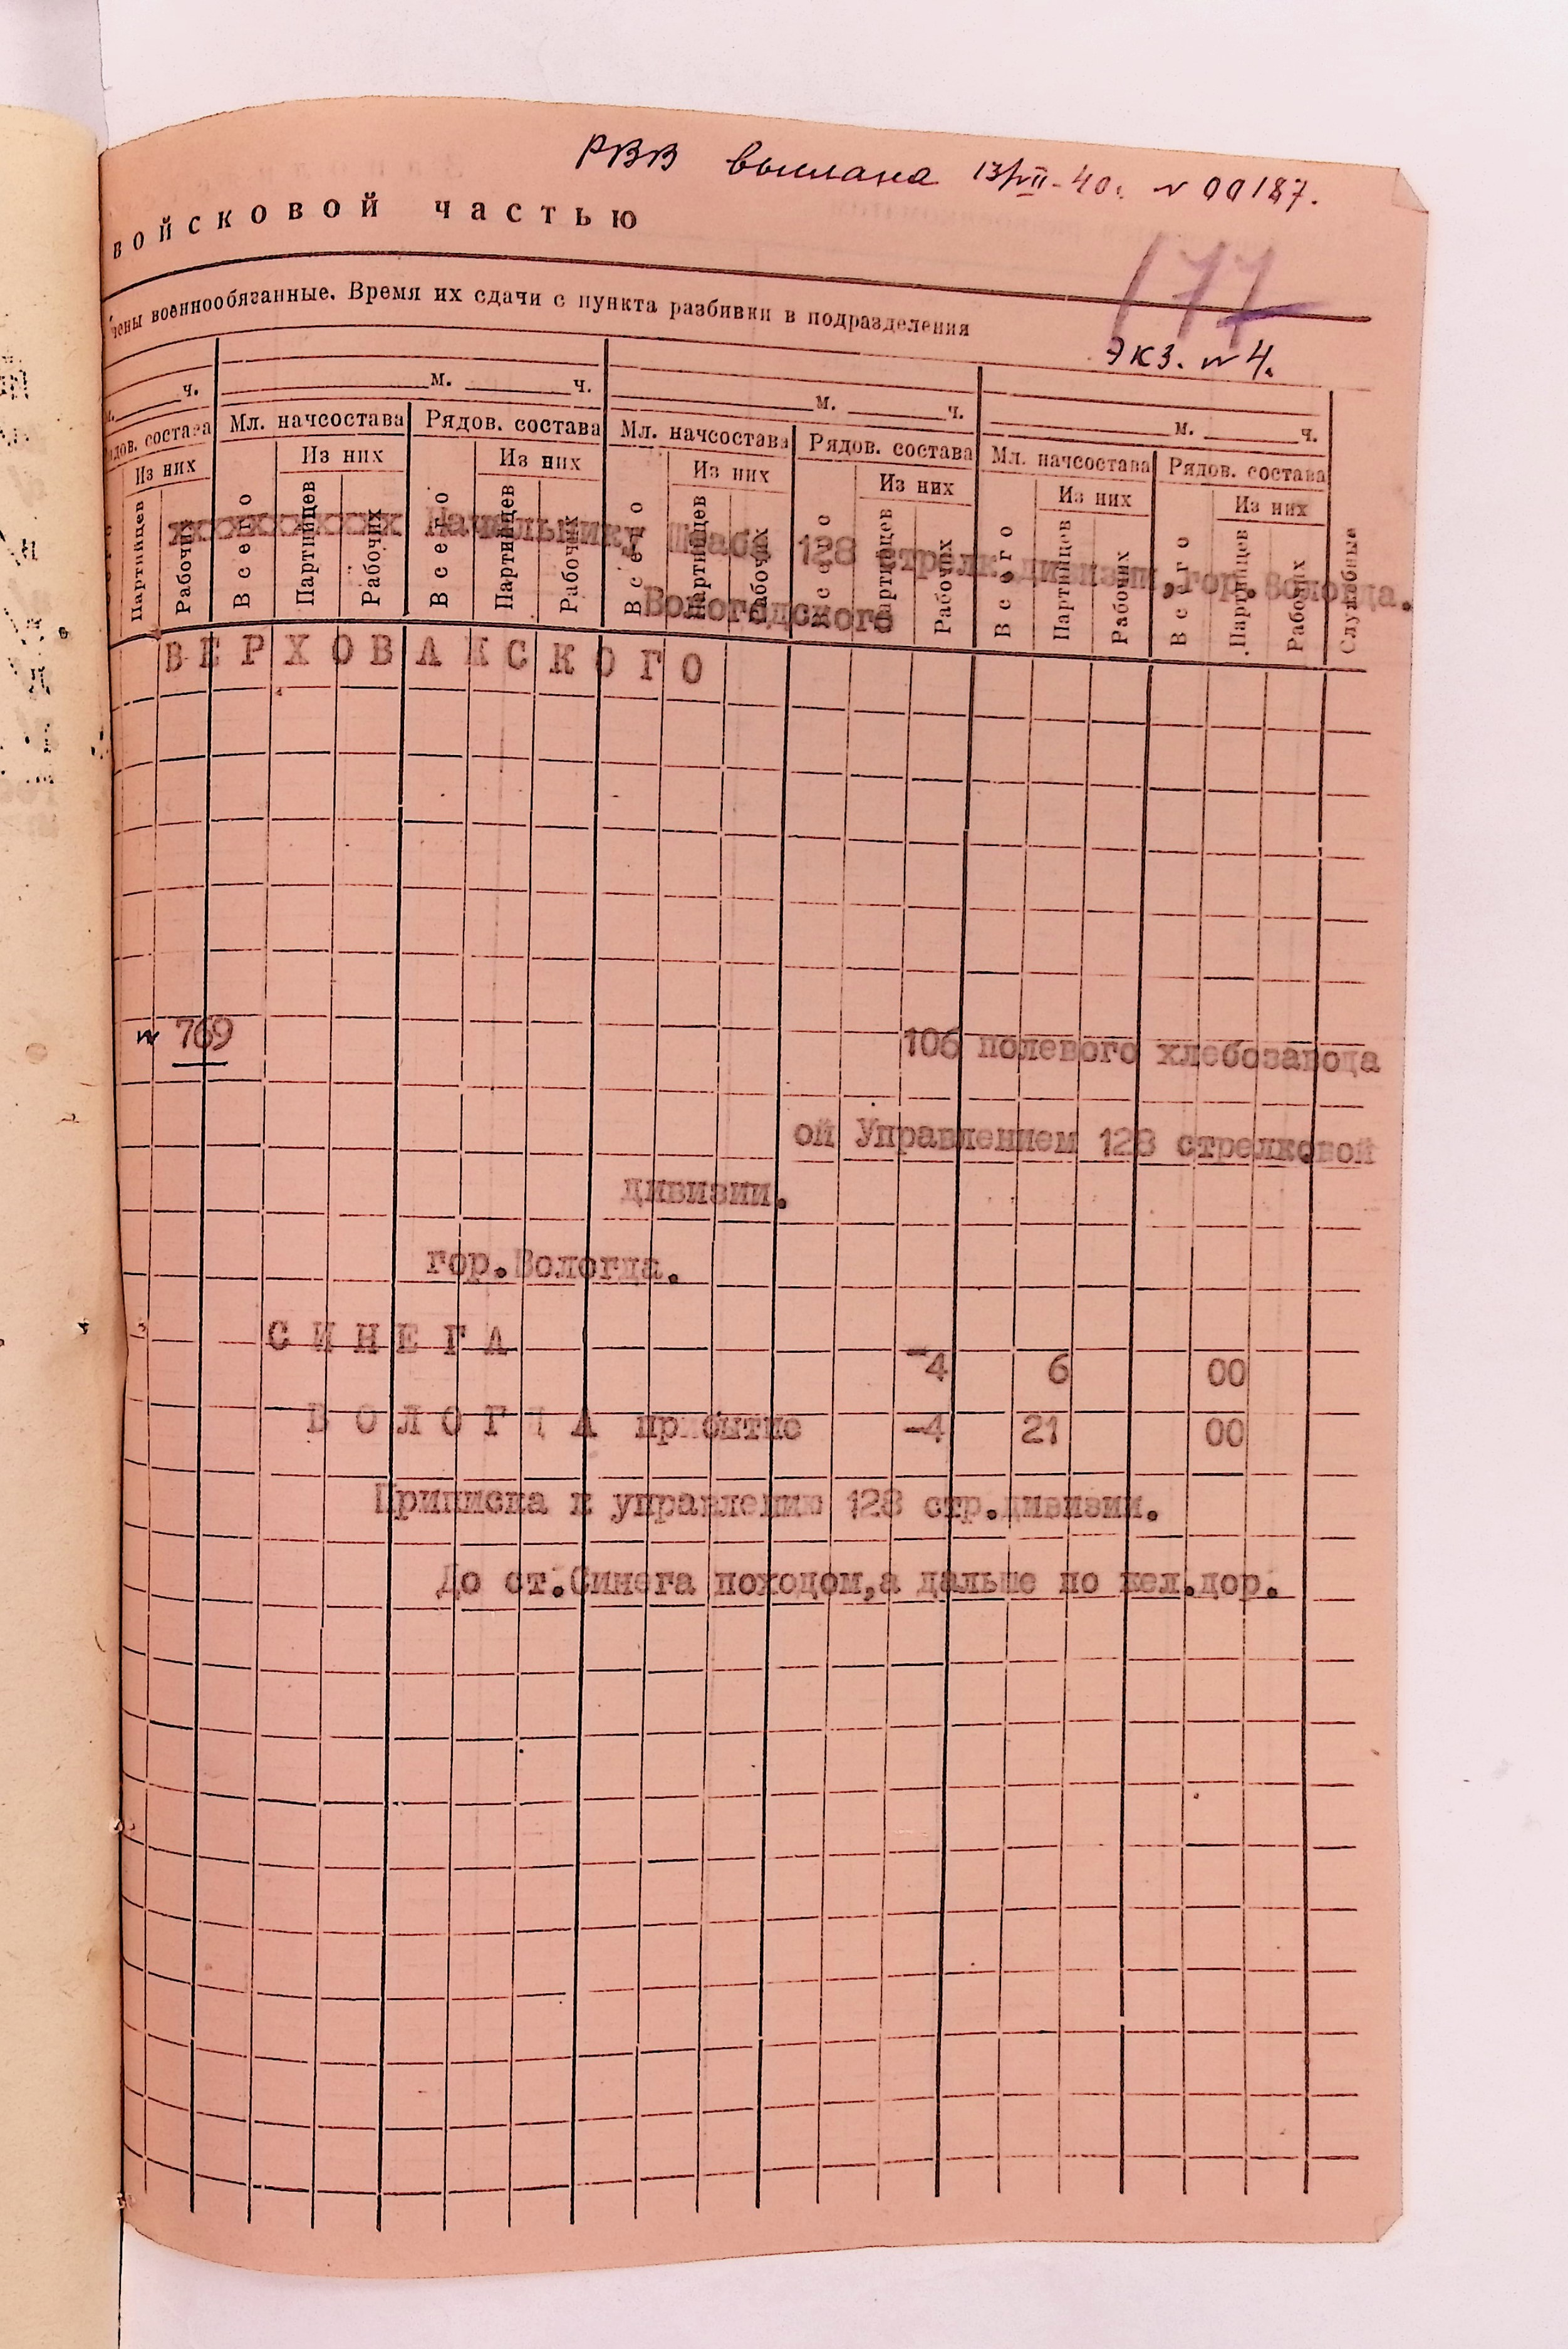 РВВ выслана 13/VII-40г. № 00187.
войсковой частью
177
чены военнообязанные. Время их сдачи с пункта разбивки в подразделения
экз. № 4.
ч. м. ч. м. ч. м. ч.
ядов. состава Мл. начсостава Рядов. состава Мл. начсостава Рядов. состава Мл. начсостава Рядов. состава
Из них Из них Из них Из них Из них Из них Из них
Партийцев Рабочих Всего Партийцев Рабочих Всего Партийцев Рабочих Всего Партийцев Рабочих Всего Партийцев Рабочих Всего Партийцев Рабочих Всего Партийцев Рабочих Служебные
хххххххххххх Начальнику Штаба 128 стрелк.дивизии,гор.Вологда.
Вологодского
ВЕРХОВАЖСКОГО
№ 769 106 полевого хлебозавода
ой Управлением 128 стрелковой
дивизии.
гор.Вологда.
СИНЕГА -4 6 00
ВОЛОГДА прибытие -4 21 00
Приписка к управлению 128 стр.дивизии.
До ст.Синега походом,а дальше по жел.дор.